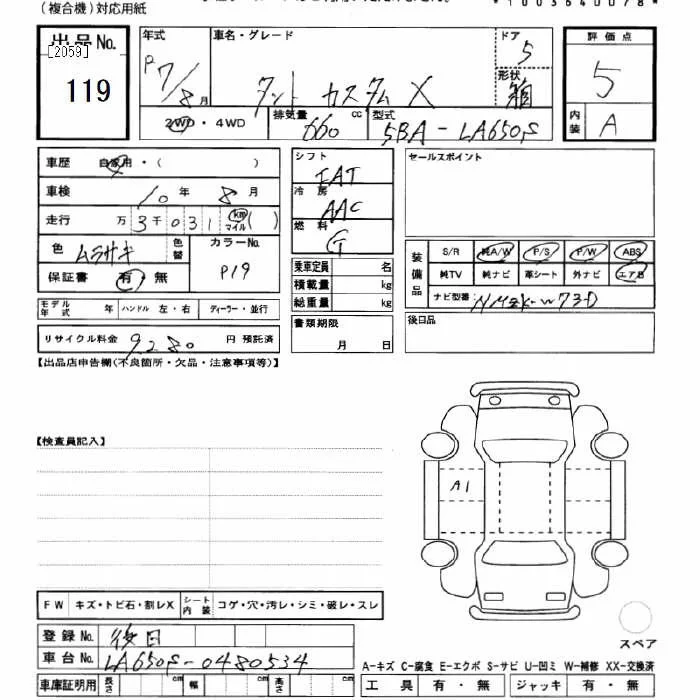 (複合機)対応用紙
*1003640078*
出品No.
[2059]
119
年式
R7/8月
車名・グレード
タント カスタム X
ドア
5
形状
箱
評価点
5
内装
A
2WD・4WD
排気量
660 cc
型式
5BA-LA650S
車歴 自家用・( )
車検 10年 8月
走行 万 3千031 km マイル ( )
色 ムラサキ 色替
カラーNo.
P19
保証書 有・無
モデル年式 年 ハンドル 左・右 ディーラー・並行
リサイクル料金 9280 円 預託済
シフト
FAT
冷房
AAC
燃料
G
乗車定員 名
積載量 kg
総重量 kg
書類期限
月 日
セールスポイント
装備品
S/R 純A/W P/S P/W ABS
純TV 純ナビ 革シート 外ナビ エアB
ナビ型番 NMZK-W73D
後日品
【出品店申告欄(不良箇所・欠品・注意事項等)】
【検査員記入】
A1
FW キズ・トビ石・割レX シート内装 コゲ・穴・汚レ・シミ・破レ・スレ
登録No. 後日
車台No. LA650S-0480534
車庫証明用 長さ cm 幅 cm 高さ cm
スペア
A-キズ C-腐食 E-エクボ S-サビ U-凹ミ W-補修 XX-交換済
工具 有・無 ジャッキ 有・無